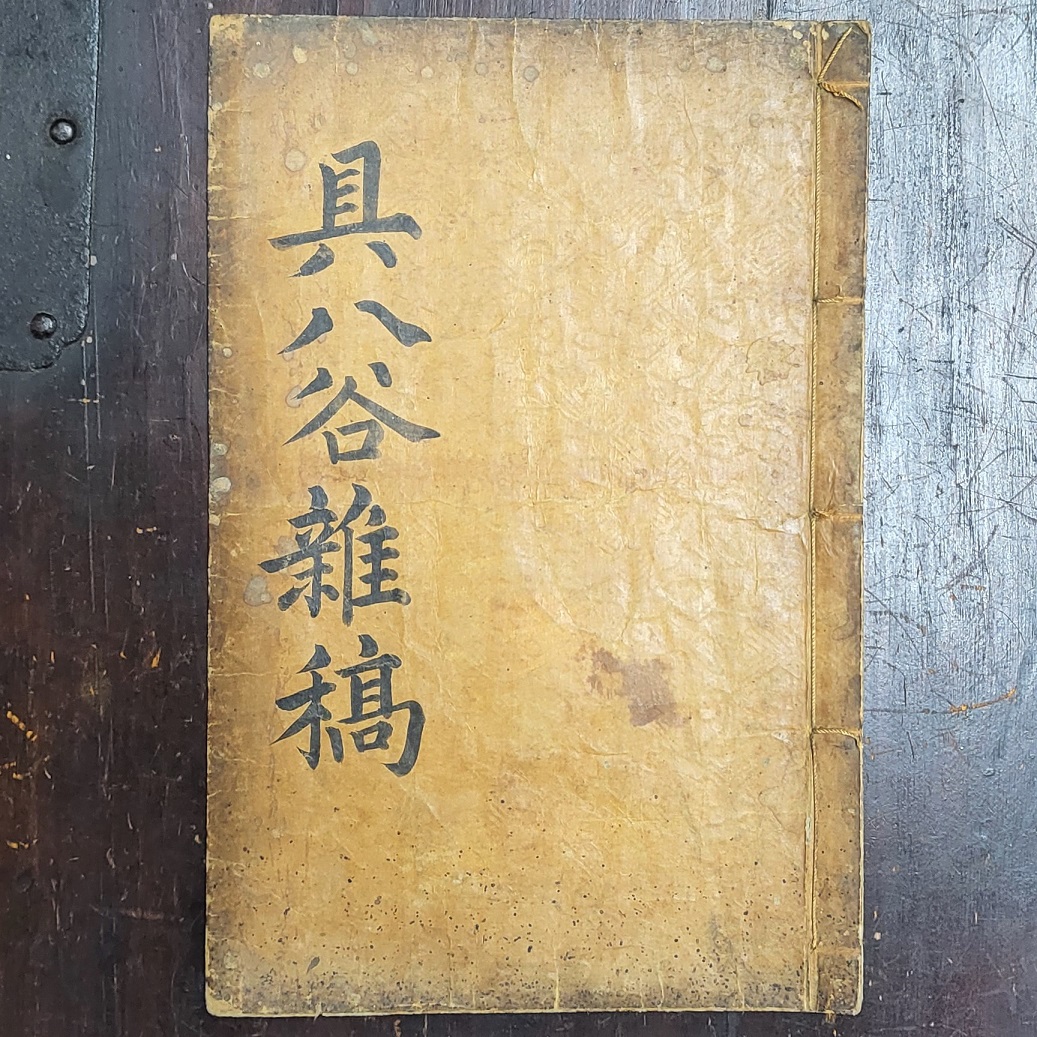 具八谷雜稿